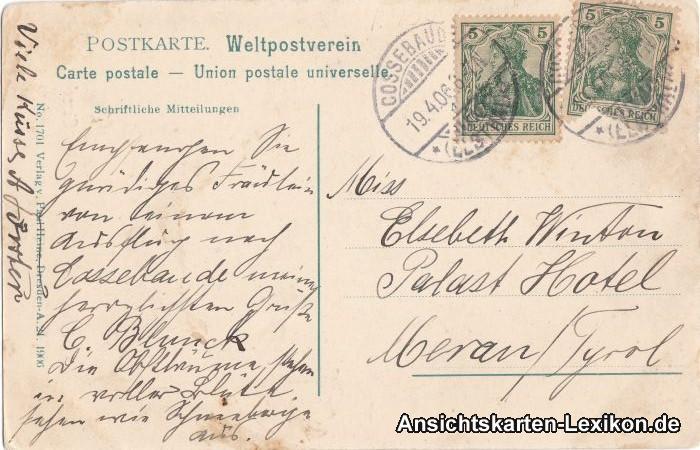 POSTKARTE. Weltpostverein
Carte postale — Union postale universelle.
Schriftliche Mitteilungen
Empfangen Sie
gnädiges Fräulein
von einem
Ausflug nach
Cossebaude meine
herzlichsten Grüße
C. Blunck
Die Obstbäume stehen
in voller Blüte,
sehen wie Schneeberge
aus.
Viele Küsse
No. 1701 Verlag v. Heine, Dresden-A. 1906
COSSEBAUDE
19.4.06.
(ELBTHAL)
5 5
DEUTSCHES REICH
5 5
DEUTSCHES REICH
Miss
Elsebeth Winton
Palast Hotel
Meran/Tyrol
Ansichtskarten-Lexikon.de